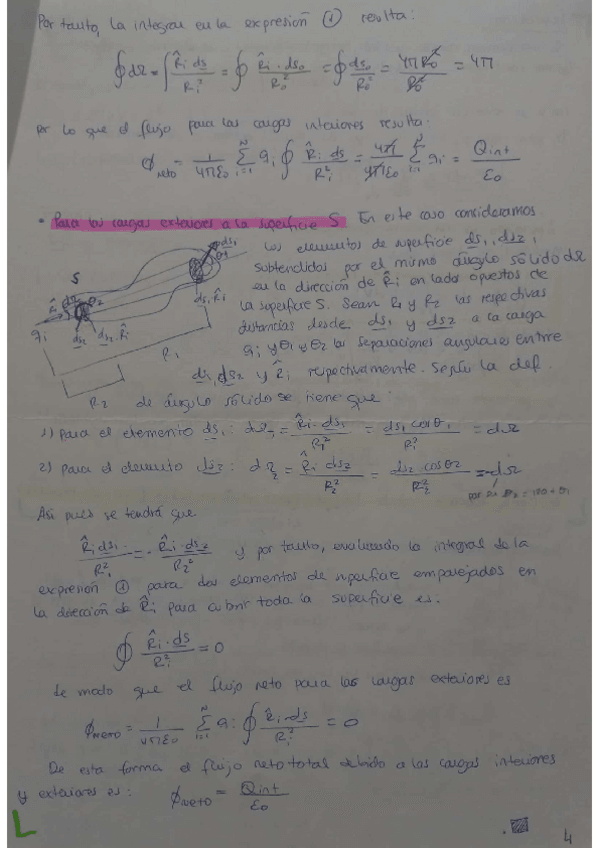 Por tanto, la integral en la expresión ① resulta:
∮dΩ = ∫ R̂i ds / Ri² = ∮ R̂i · ds₀ / R₀² = ∮ ds₀ / R₀² = 4π R₀² / R₀² = 4π
por lo que el flujo para las cargas interiores resulta:
ϕneto = 1/4πε₀ Σ(i=1, N) qi ∮ R̂i ds / Ri² = 4π/4πε₀ Σ(i=1, N) qi = Qint / ε₀
• Para las cargas exteriores a la superficie S En este caso consideramos
los elementos de superficie ds₁, ds₂,
subtendidos por el mismo ángulo sólido dΩ
en la dirección de R̂i en lados opuestos de
la superficie S. Sean R₁ y R₂ las respectivas
distancias desde ds₁ y ds₂ a la carga
qi y θ₁ y θ₂ las separaciones angulares entre
ds₁, ds₂ y R̂i respectivamente. Según la def.
de ángulo sólido se tiene que:
S
ds₁
θ₁
ds₁, R̂i
R̂i
dΩ
θ₂
qi
ds₂
ds₂, R̂i
R₁
R₂
1) Para el elemento ds₁: dΩ₁ = R̂i · ds₁ / R₁² = ds₁ cosθ₁ / R₁² = dΩ
2) Para el elemento ds₂: dΩ₂ = R̂i ds₂ / R₂² = ds₂ cosθ₂ / R₂² = -dΩ
θ₂ = 180 + θ₁
Así pues se tendrá que
R̂i ds₁ / R₁² = - R̂i ds₂ / R₂² y por tanto, evaluando la integral de la
expresión ① para dos elementos de superficie emparejados en
la dirección de R̂i para cubrir toda la superficie es:
∮ R̂i · ds / Ri² = 0
de modo que el flujo neto para las cargas exteriores es
ϕneto = 1/4πε₀ Σ(i=1, N) qi ∮ R̂i · ds / Ri² = 0
De esta forma el flujo neto total debido a las cargas interiores
y exteriores es: ϕNETO = Qint / ε₀
L
4